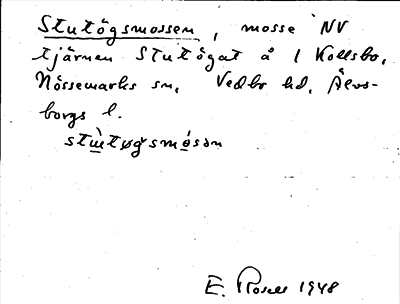 Stutögsmossen, mosse NV
tjärnen Stutögat å 1 Kollsbo,
Nössemarks sn, Vedbo hd, Älvs-
borgs l.
stɯ̀tøgsmósən
E. Rosell 1948